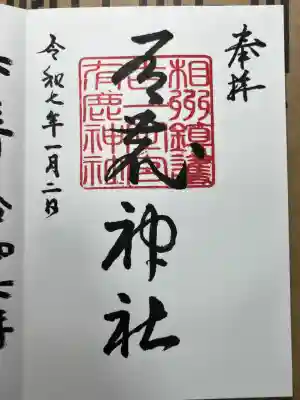 奉拝
相州鎮護
有鹿神社
有鹿神社
令和七年一月二日